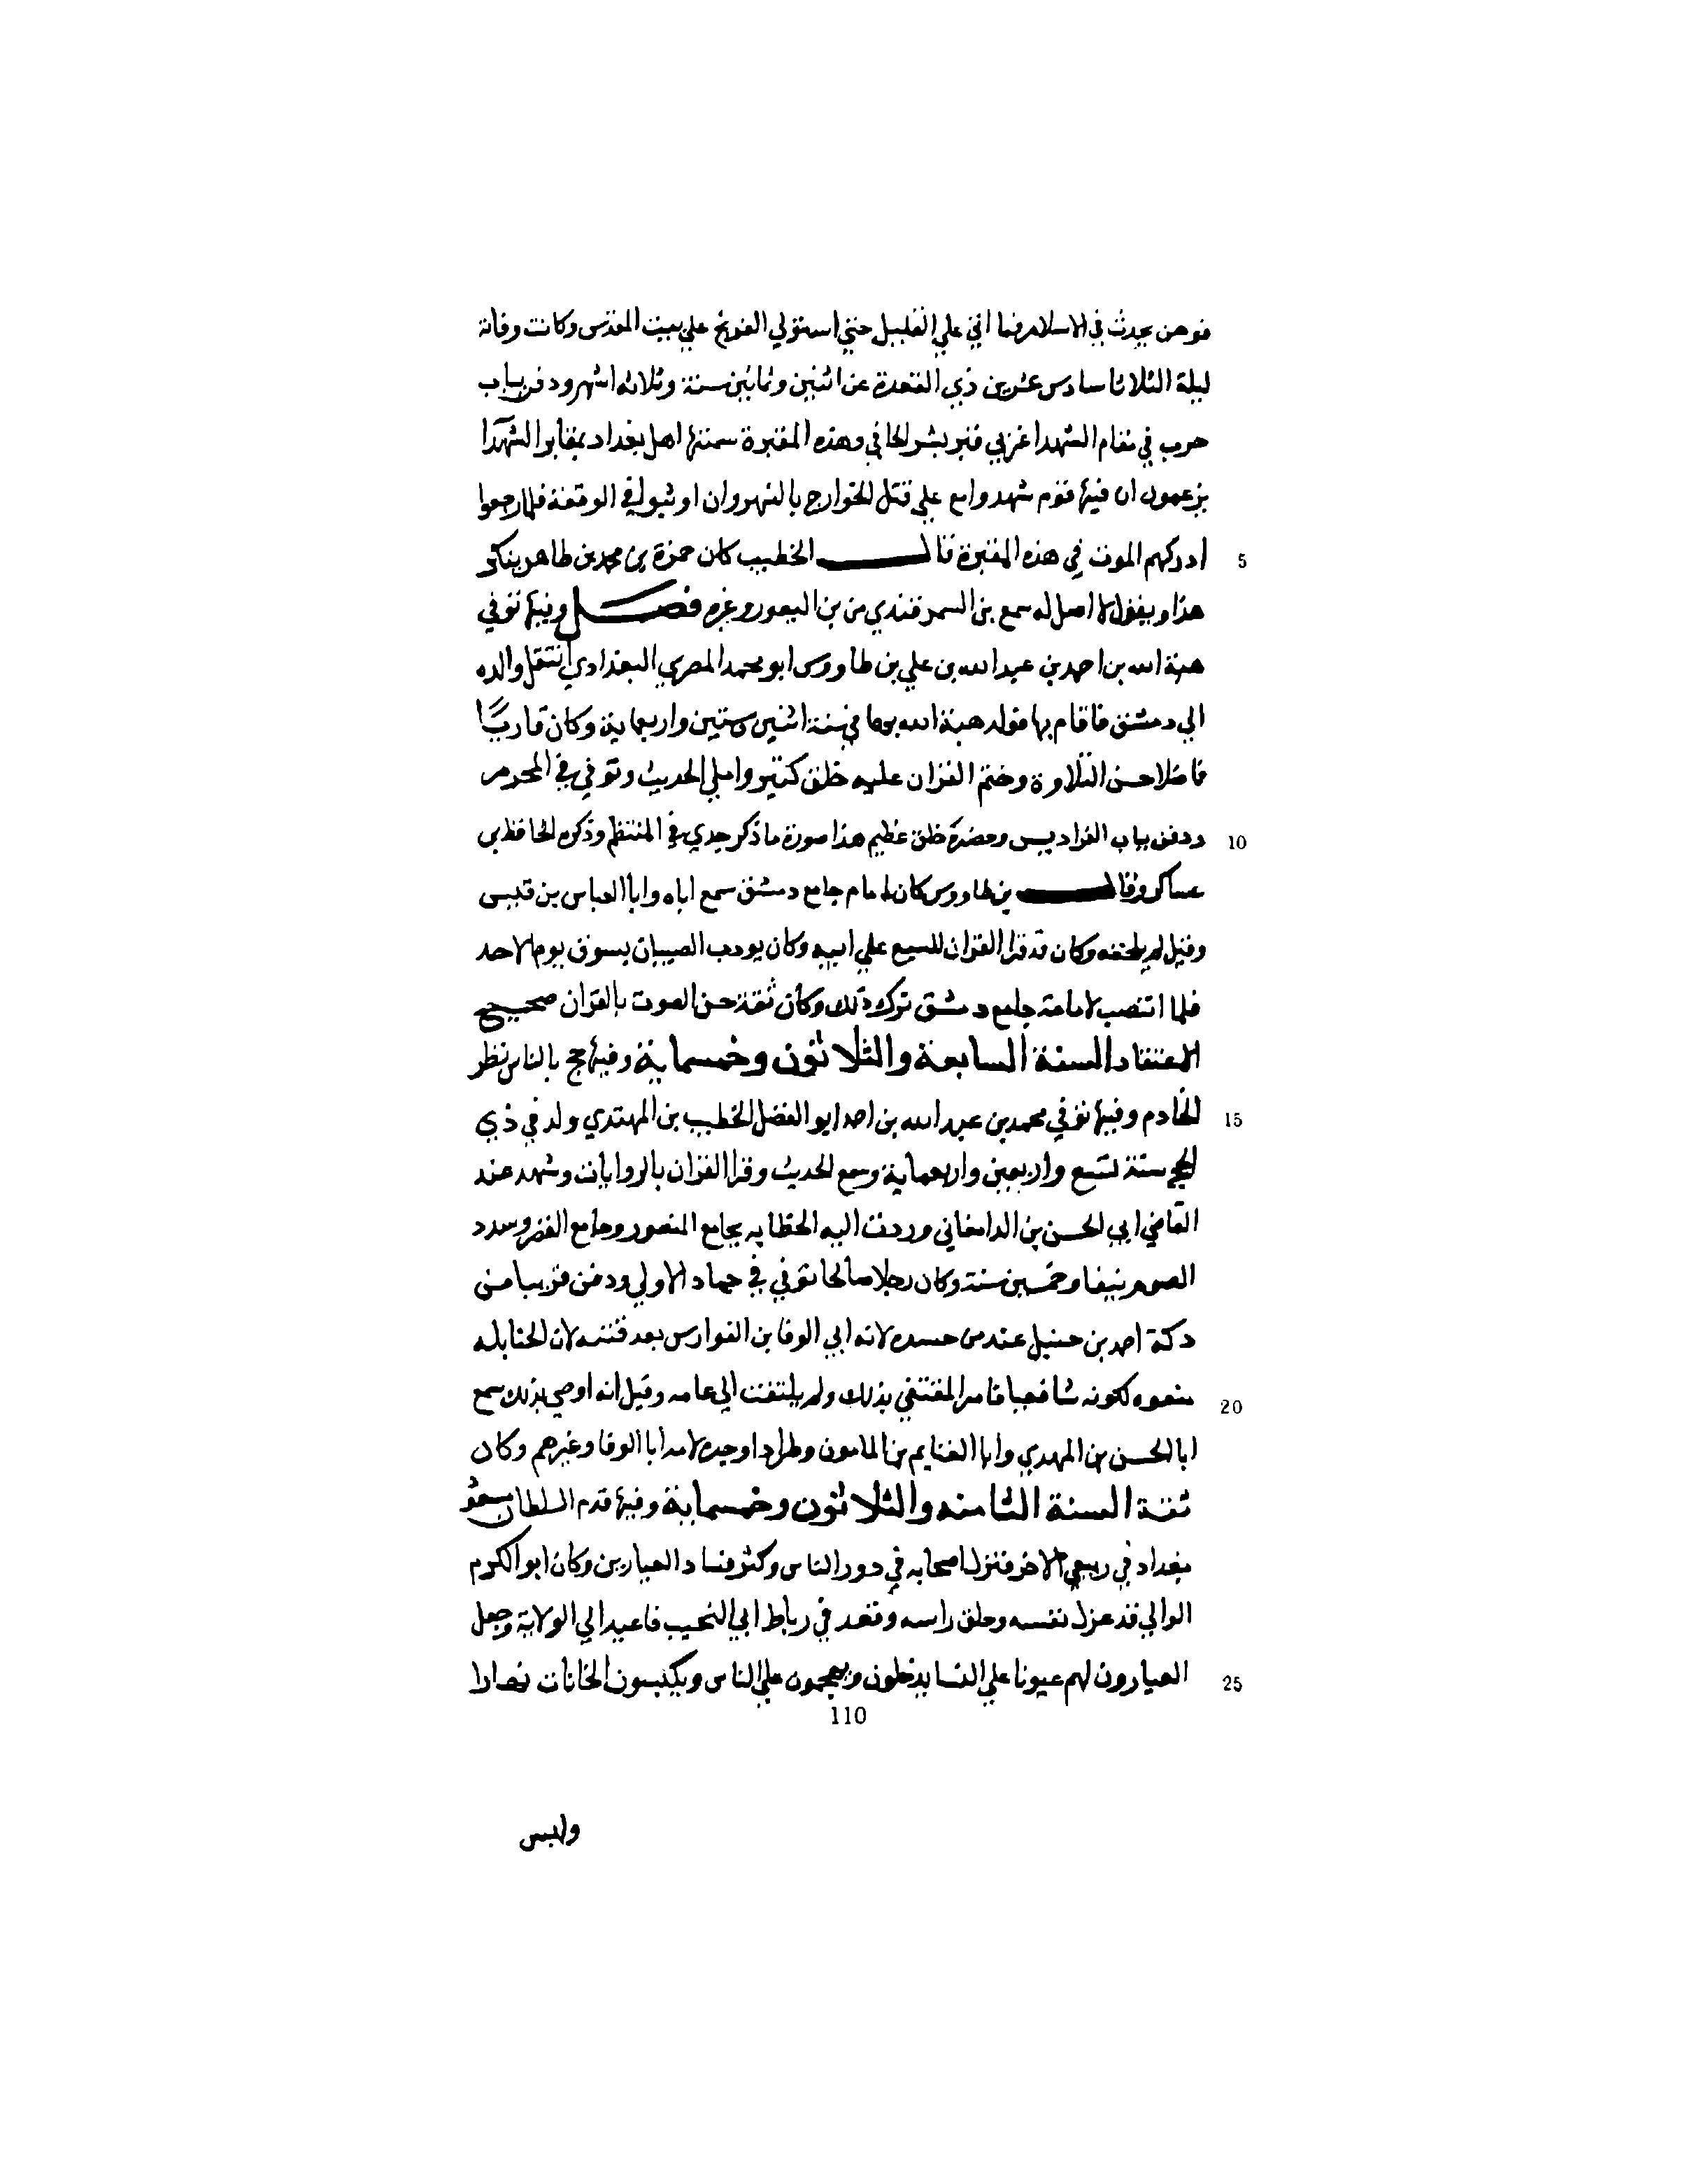 فوهن يحدث في الاسلام فما اتي علي القليل حتي استولي الفرنج علي بيت المقدس وكانت وفاته
ليلة الثلاثا سادس عشرين ذي القعدة عن اثنين وثمانين سنة وثلاثه اشهر ودفن بباب
حرب في مقام الشهدا غربي قبر بشر الحافي وهذه المقبرة سمتها اهل بغداد بمقابر الشهدا
يزعمون ان فيها قوم شهدوا مع علي قتل الخوارج بالنهروان في الوقعة فلما رجعوا
5 ادركهم الموت في هذه المقبرة قال الخطيب كان حمزة بن محمد بن طاهر ينكر
هذا ويقول لا اصل له سمع بن السمرقندي من بن وغيره فصل وفيها توفي
هبة الله بن احمد بن عبد الله بن علي بن طاووس ابو محمد المصري البغدادي انتقل والده
الي دمشق فاقام بها فولد هبة الله بها في سنة اثنين وستين واربعماية وكان قاريًا
فاضلا حسن التلاوة وختم القران عليه خلق كثير واملي الحديث وتوفي في المحرم
10 ودفن بباب الفراديس وحضره خلق عظيم هذا صورة ما ذكر جدي في المنتظم وذكره الحافظ بن
عساكر وقال بن طاووس كان امام جامع دمشق سمع اباه وابا العباس بن قبيس
وقيل لم يلحقه وكان قد قرا القران للسبع علي ابيه وكان يودب الصبيان بسوق يوم الاحد
فلما انتصب لامامة جامع دمشق ترك ذلك وكان ثقة حسن الصوت بالقران صحيح
الاعتقاد السنة السابعة والثلاثون وخمسماية وفيها حج بالناس نظر
15 الخادم وفيها توفي محمد بن عبد الله بن احمد ابو الفضل الخطيب بن المهتدي ولد في ذي
الحج سنة تسع واربعين واربعماية وسمع الحديث وقرا القران بالروايات وشهد عند
القاضي ابي الحسن بن الدامغاني وردت اليه الخطابه بجامع المنصور وجامع القصر وسرد
الصوم نيفا وخمسين سنة وكان رجلا صالحا توفي في جماد الاولي ودفن قريبا من
دكة احمد بن حنبل عند حسده لامه ابي الوفا بن القوارس بعد فتنه لان الحنابله
20 منعوه لكونه شافعيا فامر المقتفي بذلك ولم يلتفت الي عامه وقيل انه اوصي بذلك سمع
ابا الحسن بن المهدي وابا الغنايم بن المامون وطراد وجده لامه ابا الوفا وغيرهم وكان
ثقة السنة الثامنه والثلاثون وخمسماية وفيها قدم السلطان مسعود
بغداد في ربيع الاخر فنزل اصحابه في دور الناس وكثر فساد العيارين وكان ابو الكرم
الوالي قد عزل نفسه وحلق راسه وقعد في رباط ابي النجيب فاعيد الي الولاية وجعل
25 العيارون لهم عيونا علي النسا يدخلون ويهجمون علي الناس ويكبسون الخانات نهارا
110
ولبس